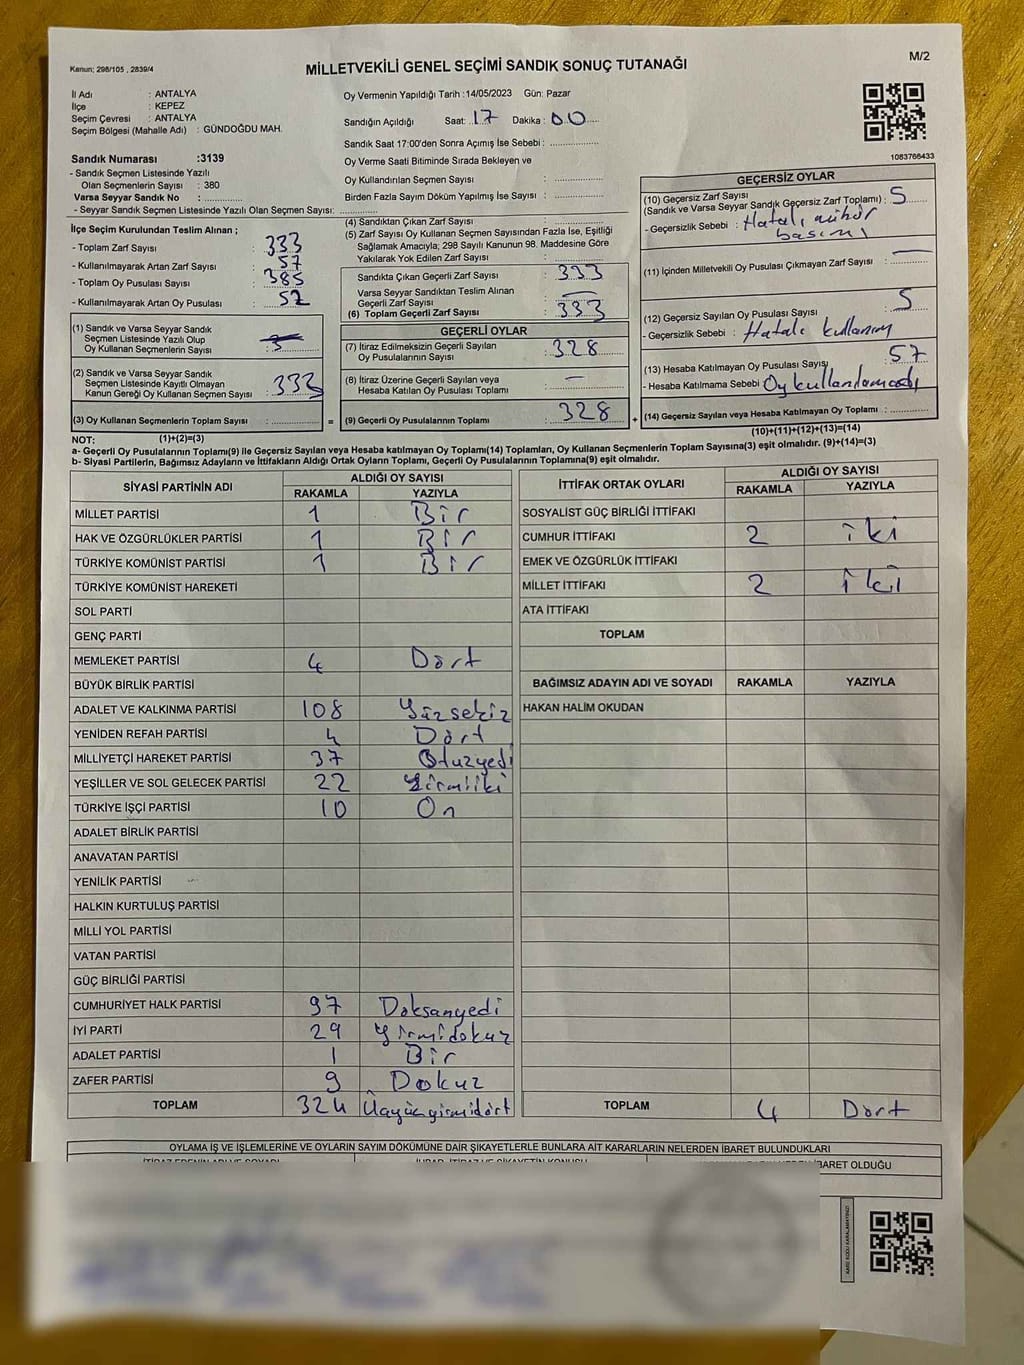 Kanun: 298/105 , 2839/4
MİLLETVEKİLİ GENEL SEÇİMİ SANDIK SONUÇ TUTANAĞI
M/2
İl Adı : ANTALYA
İlçe : KEPEZ
Seçim Çevresi : ANTALYA
Seçim Bölgesi (Mahalle Adı) : GÜNDOĞDU MAH.
Sandık Numarası :3139
- Sandık Seçmen Listesinde Yazılı
Olan Seçmenlerin Sayısı : 380
Varsa Seyyar Sandık No :
- Seyyar Sandık Seçmen Listesinde Yazılı Olan Seçmen Sayısı:
Oy Vermenin Yapıldığı Tarih :14/05/2023 Gün: Pazar
Sandığın Açıldığı Saat: 17 Dakika : 00
Sandık Saat 17:00'den Sonra Açımış İse Sebebi :
Oy Verme Saati Bitiminde Sırada Bekleyen ve
Oy Kullandırılan Seçmen Sayısı :
Birden Fazla Sayım Döküm Yapılmış İse Sayısı :
1083766433
İlçe Seçim Kurulundan Teslim Alınan ;
- Toplam Zarf Sayısı : 333
- Kullanılmayarak Artan Zarf Sayısı : 57
- Toplam Oy Pusulası Sayısı : 385
- Kullanılmayarak Artan Oy Pusulası : 52
(1) Sandık ve Varsa Seyyar Sandık
Seçmen Listesinde Yazılı Olup
Oy Kullanan Seçmenlerin Sayısı :
(2) Sandık ve Varsa Seyyar Sandık
Seçmen Listesinde Kayıtlı Olmayan
Kanun Gereği Oy Kullanan Seçmen Sayısı : 333
(3) Oy Kullanan Seçmenlerin Toplam Sayısı :
(4) Sandıktan Çıkan Zarf Sayısı :
(5) Zarf Sayısı Oy Kullanan Seçmen Sayısından Fazla İse, Eşitliği
Sağlamak Amacıyla; 298 Sayılı Kanunun 98. Maddesine Göre
Yakılarak Yok Edilen Zarf Sayısı :
Sandıkta Çıkan Geçerli Zarf Sayısı : 333
Varsa Seyyar Sandıktan Teslim Alınan
Geçerli Zarf Sayısı : —
(6) Toplam Geçerli Zarf Sayısı : 333
GEÇERLİ OYLAR
(7) İtiraz Edilmeksizin Geçerli Sayılan
Oy Pusulalarının Sayısı : 328
(8) İtiraz Üzerine Geçerli Sayılan veya
Hesaba Katılan Oy Pusulası Toplamı : —
= (9) Geçerli Oy Pusulalarının Toplamı : 328 +
GEÇERSİZ OYLAR
(10) Geçersiz Zarf Sayısı
(Sandık ve Varsa Seyyar Sandık Geçersiz Zarf Toplamı) : 5
- Geçersizlik Sebebi : Hatalı mühür
basımı
(11) İçinden Milletvekili Oy Pusulası Çıkmayan Zarf Sayısı : —
(12) Geçersiz Sayılan Oy Pusulası Sayısı : 5
- Geçersizlik Sebebi : Hatalı kullanım
(13) Hesaba Katılmayan Oy Pusulası Sayısı : 57
- Hesaba Katılmama Sebebi : Oy kullanılamadı
(14) Geçersiz Sayılan veya Hesaba Katılmayan Oy Toplamı :
NOT: (1)+(2)=(3)
(10)+(11)+(12)+(13)=(14)
a- Geçerli Oy Pusulalarının Toplamı(9) ile Geçersiz Sayılan veya Hesaba katılmayan Oy Toplamı(14) Toplamları, Oy Kullanan Seçmenlerin Toplam Sayısına(3) eşit olmalıdır. (9)+(14)=(3)
b- Siyasi Partilerin, Bağımsız Adayların ve İttifakların Aldığı Ortak Oyların Toplamı, Geçerli Oy Pusulalarının Toplamına(9) eşit olmalıdır.
SİYASİ PARTİNİN ADI ALDIĞI OY SAYISI
RAKAMLA YAZIYLA
MİLLET PARTİSİ 1 Bir
HAK VE ÖZGÜRLÜKLER PARTİSİ 1 Bir
TÜRKİYE KOMÜNİST PARTİSİ 1 Bir
TÜRKİYE KOMÜNİST HAREKETİ
SOL PARTİ
GENÇ PARTİ
MEMLEKET PARTİSİ 4 Dört
BÜYÜK BİRLİK PARTİSİ
ADALET VE KALKINMA PARTİSİ 108 Yüzsekiz
YENİDEN REFAH PARTİSİ 4 Dört
MİLLİYETÇİ HAREKET PARTİSİ 37 Otuzyedi
YEŞİLLER VE SOL GELECEK PARTİSİ 22 Yirmiiki
TÜRKİYE İŞÇİ PARTİSİ 10 On
ADALET BİRLİK PARTİSİ
ANAVATAN PARTİSİ
YENİLİK PARTİSİ
HALKIN KURTULUŞ PARTİSİ
MİLLİ YOL PARTİSİ
VATAN PARTİSİ
GÜÇ BİRLİĞİ PARTİSİ
CUMHURİYET HALK PARTİSİ 97 Doksanyedi
İYİ PARTİ 29 Yirmidokuz
ADALET PARTİSİ 1 Bir
ZAFER PARTİSİ 9 Dokuz
TOPLAM 324 Üçyüzyirmidört
İTTİFAK ORTAK OYLARI ALDIĞI OY SAYISI
RAKAMLA YAZIYLA
SOSYALİST GÜÇ BİRLİĞİ İTTİFAKI
CUMHUR İTTİFAKI 2 iki
EMEK VE ÖZGÜRLÜK İTTİFAKI
MİLLET İTTİFAKI 2 iki
ATA İTTİFAKI
TOPLAM
BAĞIMSIZ ADAYIN ADI VE SOYADI RAKAMLA YAZIYLA
HAKAN HALİM OKUDAN
TOPLAM 4 Dört
OYLAMA İŞ VE İŞLEMLERİNE VE OYLARIN SAYIM DÖKÜMÜNE DAİR ŞİKAYETLERLE BUNLARA AİT KARARLARIN NELERDEN İBARET BULUNDUKLARI
İBARET OLDUĞU